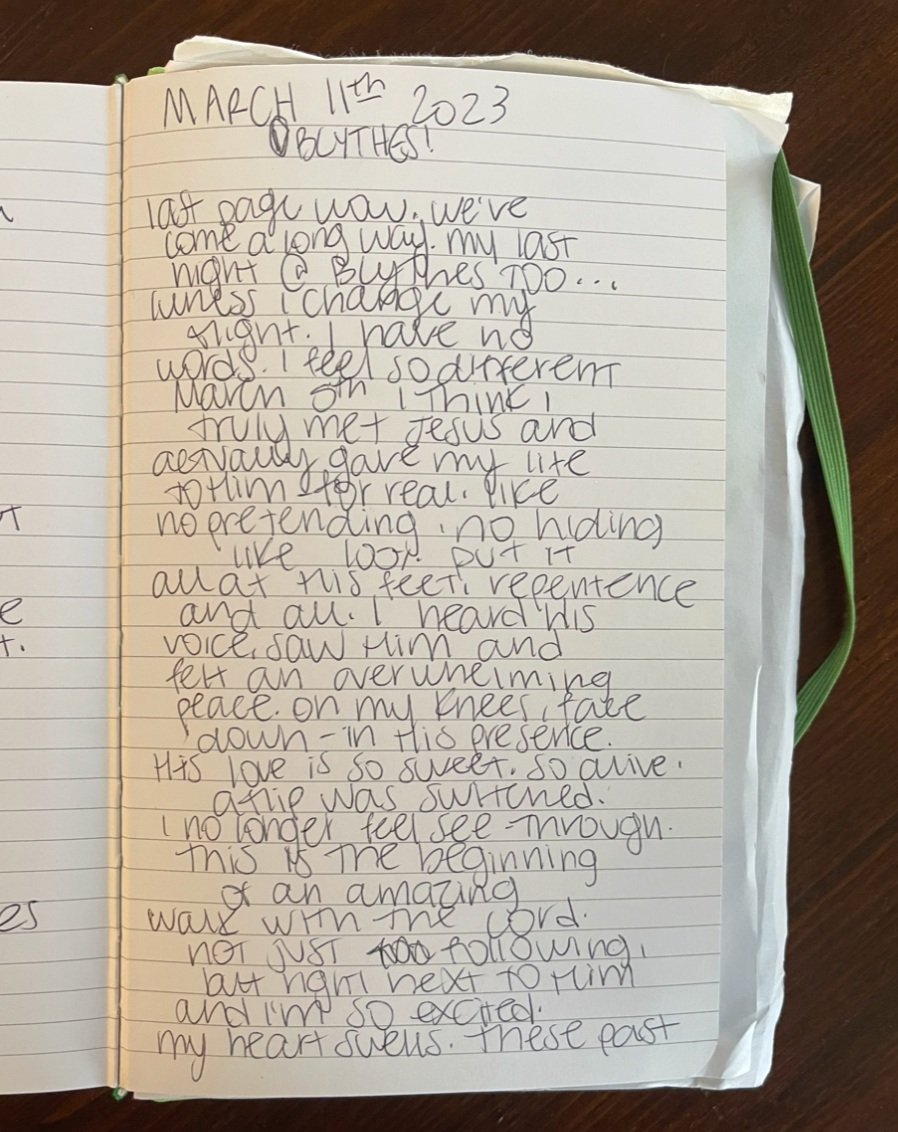 MARCH 11th 2023
@BLYTHES!
last page wow. we've
come a long way. my last
night @ Blythes TOO...
unless i change my
flight. I have no
words. I feel so different
March 5th I think I
truly met Jesus and
actually gave my life
to Him for real. like
no pretending. no hiding
like look put it
all at His feet. repentence
and all. I heard His
voice, saw Him and
felt an overwhelming
peace. on my knees, face
down - in His presence.
His love is so sweet. so alive.
a flip was switched.
I no longer feel see-through.
this is the beginning
of an amazing
walk with the Lord.
not just following,
but right next to Him
and i'm so excited.
my heart swells. These past
n
T
e
t.
es